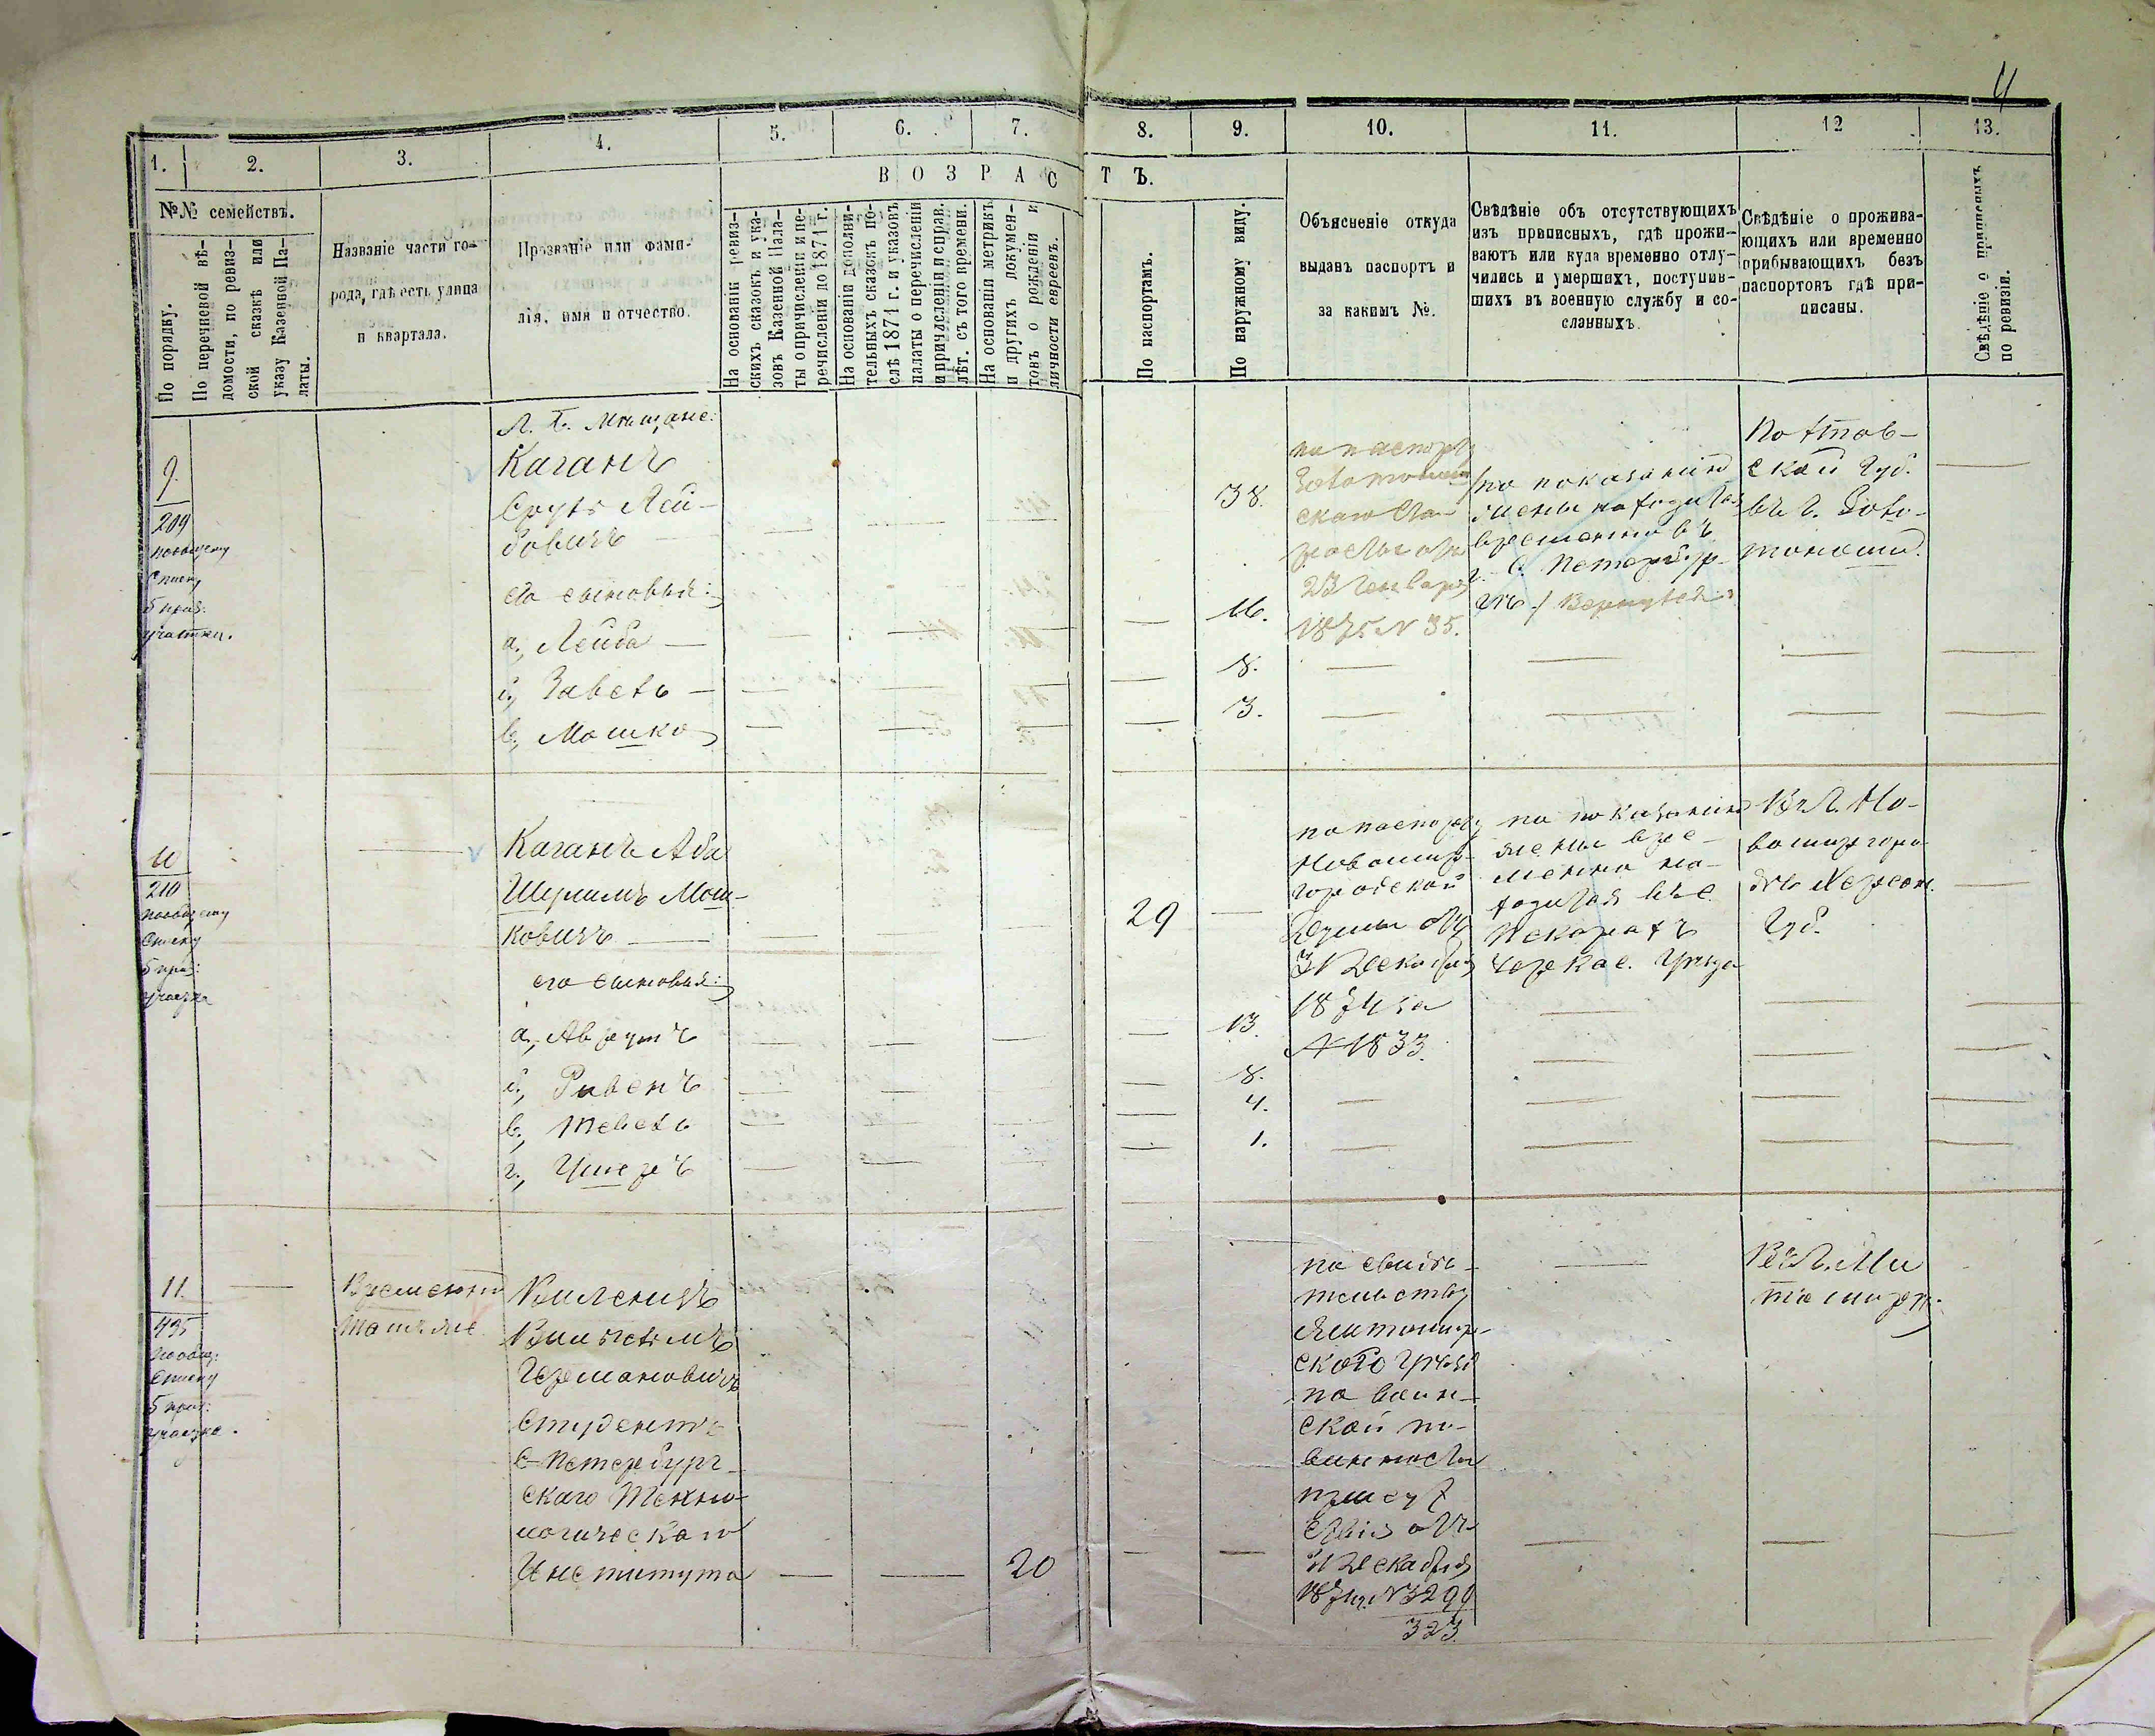 4
1.
2.
3.
4.
5.
6.
7.
8.
9.
10.
11.
12
13.
ВОЗРАСТЪ.
№№ семействъ.
По порядку.
По перечневой вѣ-
домости, по ревиз-
ской сказкѣ или
указу Казенной Па-
латы.
Названіе части го-
рода, гдѣ есть улица
и квартала.
Прозваніе или фами-
лія, имя и отчество.
На основаніи ревиз-
скихъ сказокъ и ука-
зовъ Казенной Пала-
ты о причисленіи и пе-
речисленіи до 1871 г.
На основаніи дополни-
тельныхъ сказокъ по-
слѣ 1871 г. и указовъ
палаты о перечисленіи
и причисленіи и справ.
лѣт. съ того времени.
На основаніи метрикъ
и другихъ докумен-
товъ о рожденіи и
личности евреевъ.
По паспортамъ.
По наружному виду.
Объясненіе откуда
выданъ паспортъ и
за какимъ №.
Свѣдѣніе объ отсутствующихъ
изъ приписныхъ, гдѣ прожи-
ваютъ или куда временно отлу-
чились и умершихъ, поступив-
шихъ въ военную службу и со-
сланныхъ.
Свѣдѣніе о прожива-
ющихъ или временно
прибывающихъ безъ
паспортовъ гдѣ при-
писаны.
Свѣдѣніе о приписныхъ
по ревизіи.
9.
209
по общему
списку
5 приз:
участка.
Мѣщане:
Каганъ
Сруль Лей-
бовичъ
его сыновья:
а, Лейба
б, Завель
в, Мошко
38.
16.
8.
3.
по паспорту
Золотонош
скаго Ста-
росты отъ
23 Генваря
1875 N 35.
по показанію
жены находится
временно въ
г. С. Петербур-
гѣ
Полтав-
ской Губ.
въ г. Золо-
тоноши.
10
210
по общему
списку
5 приз:
участка
Каганъ Аба
Шулимъ Мош-
ковичъ
его сыновья:
а, Аврумъ
б, Рувенъ
в, Тевель
г, Ушеръ
29
13
8.
4.
1.
по паспорту
Новомир-
городской
Думы отъ
31 Декабря
1874 за
N 1833.
по показанію
жены вре-
менно на-
ходится въ с.
Черкас. Уѣзда
Въ г. Но-
вомиргоро-
дѣ Херсон.
Губ.
11.
495
по общ:
списку
5 приз:
участка.
Временно
Виленцъ
Вильгельмъ
Германовичъ
Студентъ
С-Петербург-
скаго Техно-
логическаго
Института
20
по свидѣ-
тельству
Житомир-
ского Уѣзд
по воин-
ской по-
винности
присут
ствія отъ
Декабря
1874 г. N 3299
323.
Въ г. Жи
томирѣ